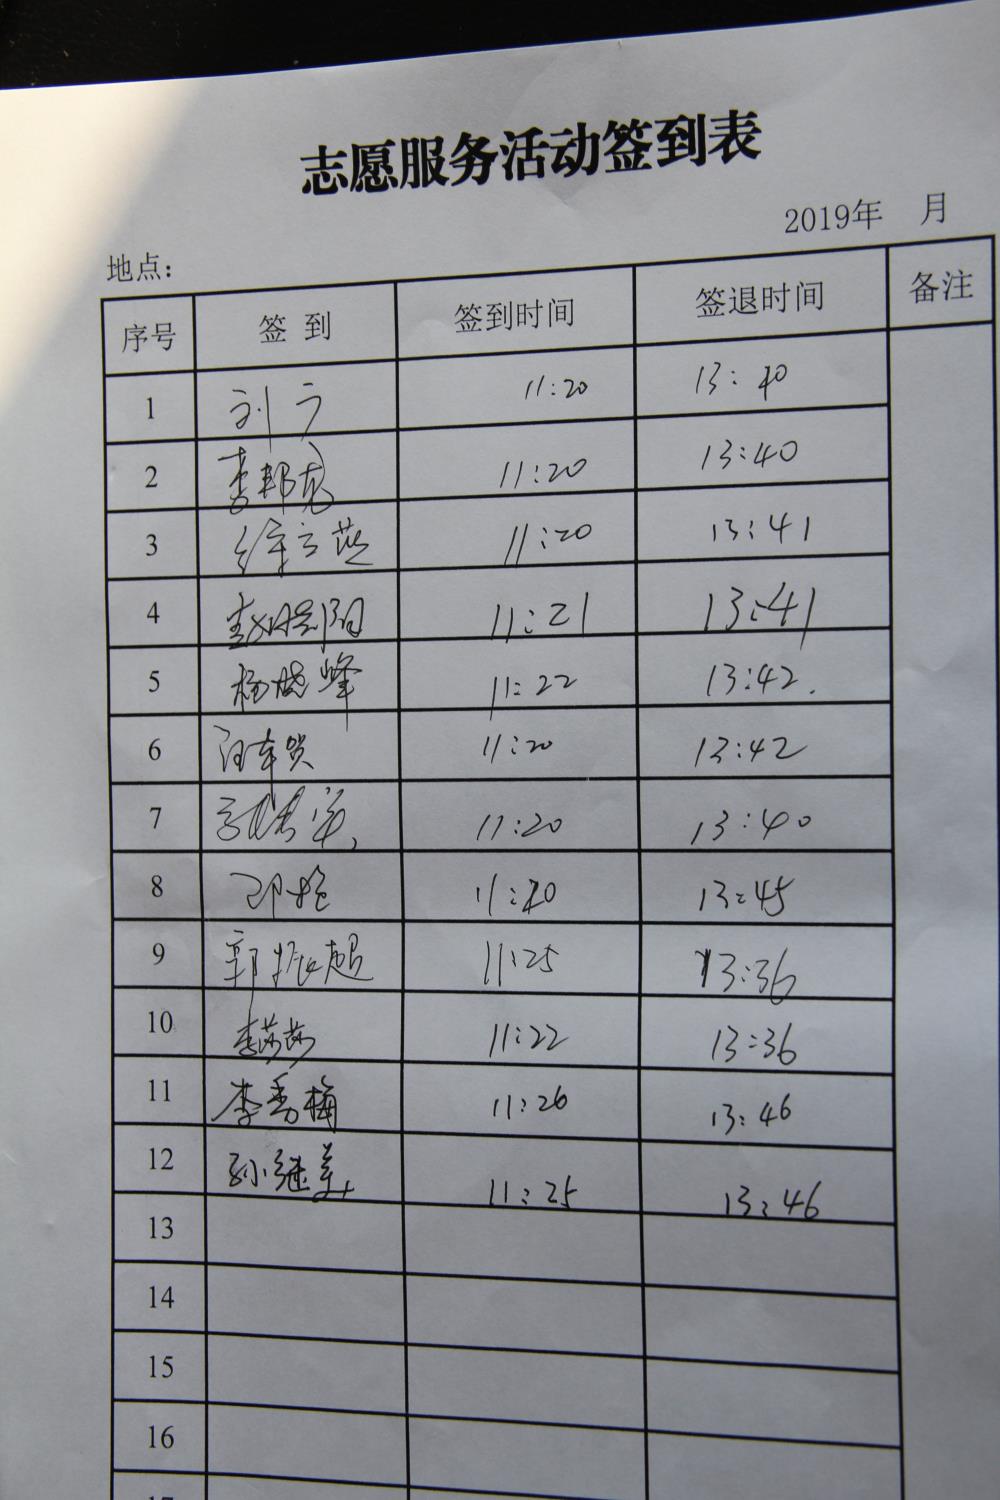 志愿服务活动签到表
2019年 月
地点：
序号 签到 签到时间 签退时间 备注
1 刘 11:20 13:40
2 李邦克 11:20 13:40
3 徐立燕 11:20 13:41
4 赵朝阳 11:21 13:41
5 杨晓峰 11:22 13:42.
6 11:20 13:42
7 11:20 13:40
8 邓艳 11:20 13:45
9 郭振超 11:25 13:36
10 李莎莎 11:22 13:36
11 李秀梅 11:26 13:46
12 孙继美 11:25 13:46
13
14
15
16